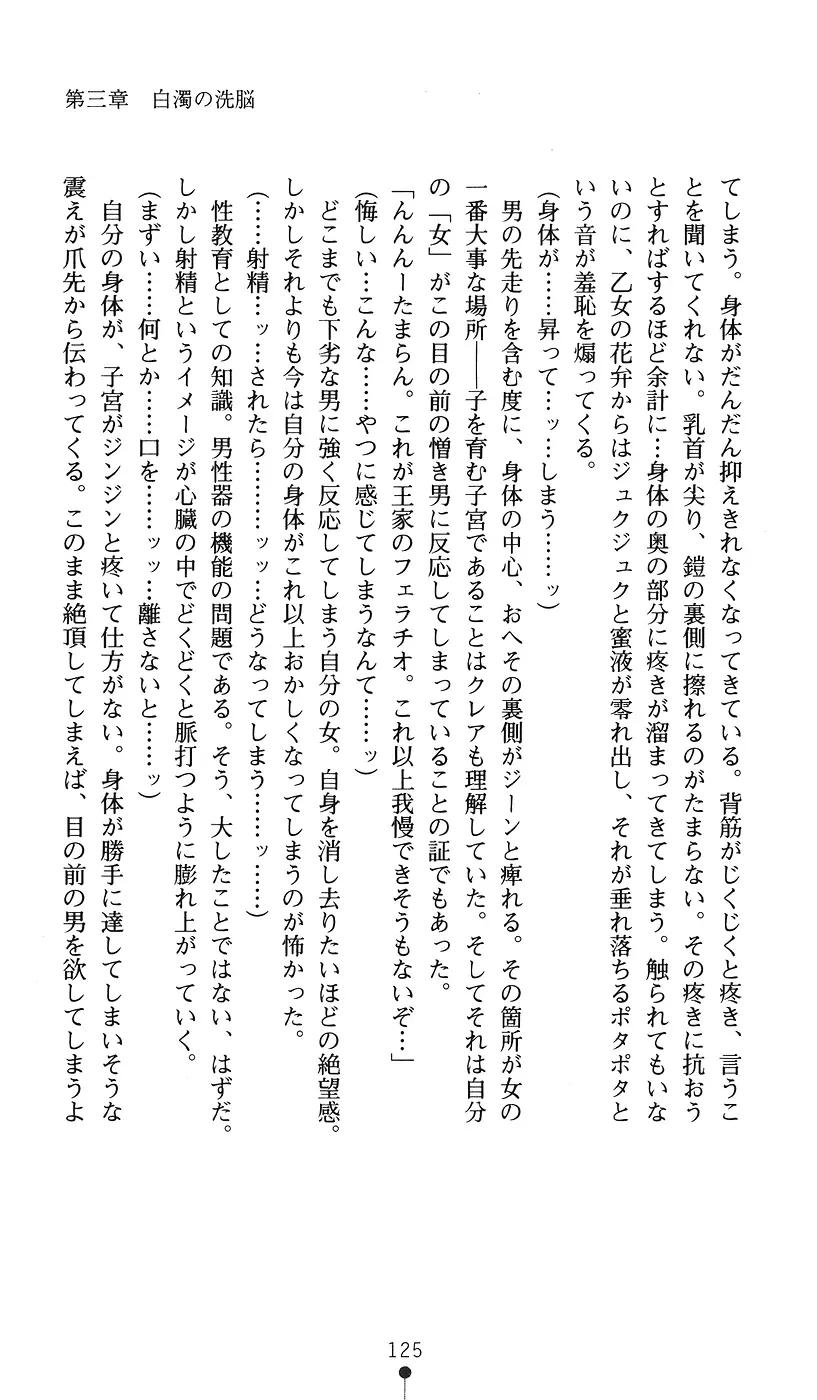 第三章　白濁の洗脳
てしまう。身体がだんだん抑えきれなくなってきている。背筋がじくじくと疼き、言うこ
とを聞いてくれない。乳首が尖り、鎧の裏側に擦れるのがたまらない。その疼きに抗おう
とすればするほど余計に…身体の奥の部分に疼きが溜まってきてしまう。触られてもいな
いのに、乙女の花弁からはジュクジュクと蜜液が零れ出し、それが垂れ落ちるポタポタと
いう音が羞恥を煽ってくる。
(身体が……昇って…ッ…しまう……ッ)
　男の先走りを含む度に、身体の中心、おへその裏側がジーンと痺れる。その箇所が女の
一番大事な場所――子を育む子宮であることはクレアも理解していた。そしてそれは自分
の「女」がこの目の前の憎き男に反応してしまっていることの証でもあった。
「んんんーたまらん。これが王家のフェラチオ。これ以上我慢できそうもないぞ…」
(悔しい…こんな……やつに感じてしまうなんて……ッ)
　どこまでも下劣な男に強く反応してしまう自分の女。自身を消し去りたいほどの絶望感。
しかしそれよりも今は自分の身体がこれ以上おかしくなってしまうのが怖かった。
(……射精…ッ…されたら………ッッ…どうなってしまう……ッ……)
　性教育としての知識。男性器の機能の問題である。そう、大したことではない、はずだ。
しかし射精というイメージが心臓の中でどくどくと脈打つように膨れ上がっていく。
(まずい……何とか……口を……ッッ…離さないと……ッ)
　自分の身体が、子宮がジンジンと疼いて仕方がない。身体が勝手に達してしまいそうな
震えが爪先から伝わってくる。このまま絶頂してしまえば、目の前の男を欲してしまうよ
125